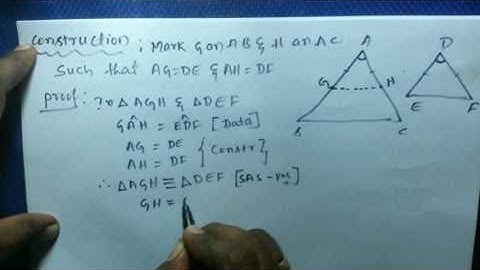 Construction: Mark G on AB & H on AC
such that AG=DE & AH=DF
Proof: In △AGH & △DEF
GÂH = ED̂F [Data]
AG = DE
AH = DF { Constr }
∴ △AGH ≡ △DEF [SAS - Pos]
GH =
A
G H
B C
D
E F